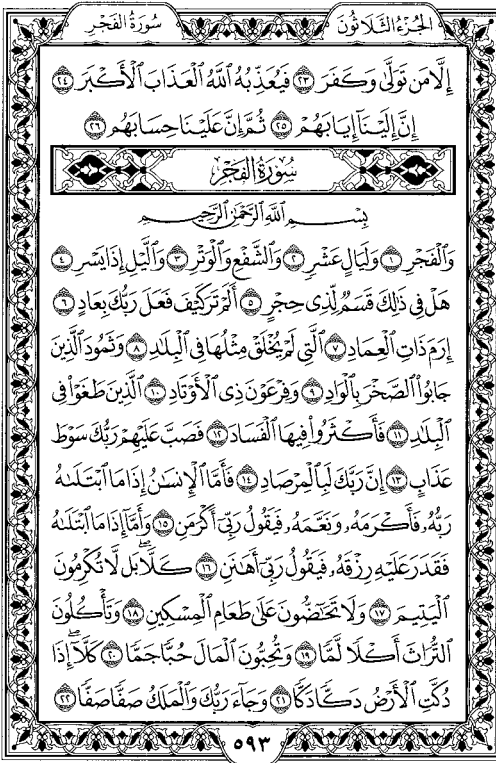 سُورَةُ الفَجْرِ الجُزْءُ الثَّلَاثُونَ
إِلَّا مَن تَوَلَّىٰ وَكَفَرَ ٢٣ فَيُعَذِّبُهُ ٱللَّهُ ٱلْعَذَابَ ٱلْأَكْبَرَ ٢٤
إِنَّ إِلَيْنَآ إِيَابَهُمْ ٢٥ ثُمَّ إِنَّ عَلَيْنَا حِسَابَهُم ٢٦
سُورَةُ الفَجْرِ
بِسْمِ ٱللَّهِ ٱلرَّحْمَٰنِ ٱلرَّحِيمِ
وَٱلْفَجْرِ ١ وَلَيَالٍ عَشْرٍ ٢ وَٱلشَّفْعِ وَٱلْوَتْرِ ٣ وَٱلَّيْلِ إِذَا يَسْرِ ٤
هَلْ فِي ذَٰلِكَ قَسَمٌ لِّذِي حِجْرٍ ٥ أَلَمْ تَرَ كَيْفَ فَعَلَ رَبُّكَ بِعَادٍ ٦
إِرَمَ ذَاتِ ٱلْعِمَادِ ٧ ٱلَّتِي لَمْ يُخْلَقْ مِثْلُهَا فِي ٱلْبِلَٰدِ ٨ وَثَمُودَ ٱلَّذِينَ
جَابُوا۟ ٱلصَّخْرَ بِٱلْوَادِ ٩ وَفِرْعَوْنَ ذِي ٱلْأَوْتَادِ ١٠ ٱلَّذِينَ طَغَوْا۟ فِي
ٱلْبِلَٰدِ ١١ فَأَكْثَرُوا۟ فِيهَا ٱلْفَسَادَ ١٢ فَصَبَّ عَلَيْهِمْ رَبُّكَ سَوْطَ
عَذَابٍ ١٣ إِنَّ رَبَّكَ لَبِٱلْمِرْصَادِ ١٤ فَأَمَّا ٱلْإِنسَٰنُ إِذَا مَا ٱبْتَلَىٰهُ
رَبُّهُۥ فَأَكْرَمَهُۥ وَنَعَّمَهُۥ فَيَقُولُ رَبِّيٓ أَكْرَمَنِ ١٥ وَأَمَّآ إِذَا مَا ٱبْتَلَىٰهُ
فَقَدَرَ عَلَيْهِ رِزْقَهُۥ فَيَقُولُ رَبِّيٓ أَهَٰنَنِ ١٦ كَلَّا ۖ بَل لَّا تُكْرِمُونَ
ٱلْيَتِيمَ ١٧ وَلَا تَحَٰٓضُّونَ عَلَىٰ طَعَامِ ٱلْمِسْكِينِ ١٨ وَتَأْكُلُونَ
ٱلتُّرَاثَ أَكْلًا لَّمًّا ١٩ وَتُحِبُّونَ ٱلْمَالَ حُبًّا جَمًّا ٢٠ كَلَّآ ۖ إِذَا
دُكَّتِ ٱلْأَرْضُ دَكًّا دَكًّا ٢١ وَجَآءَ رَبُّكَ وَٱلْمَلَكُ صَفًّا صَفًّا ٢٢
٥٩٣